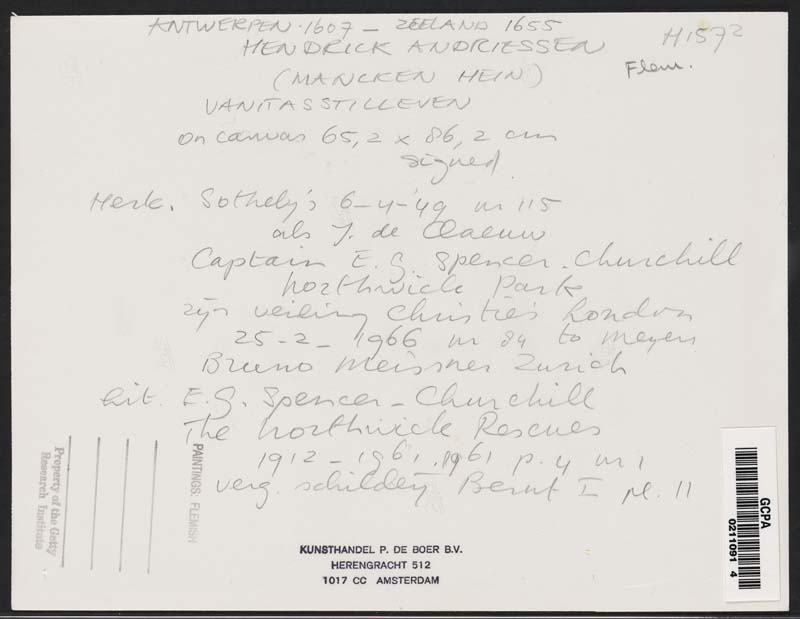 ANTWERPEN · 1607 – ZEELAND 1655
HENDRICK ANDRIESSEN
H1572
Flem.
(MANCKEN HEIN)
VANITASSTILLEVEN
on canvas 65,2 x 86,2 cm
signed
Herk. Sotheby's 6-4-'49 nr 115
als J. de Claeuw
Captain E.G. Spencer-Churchill
Northwick Park
zijn veiling Christie's London
25-2-1966 nr 84 to Meyers
Bruno Meissner Zurich
Lit. E.G. Spencer-Churchill
The Northwick Rescues
1912–1961, 1961 p. 4 nr 1
verg. schilderij Bernt I pl. 11
Property of the Getty
Research Institute
PAINTINGS: FLEMISH
KUNSTHANDEL P. DE BOER B.V.
HERENGRACHT 512
1017 CC AMSTERDAM
GCPA
0211091 4